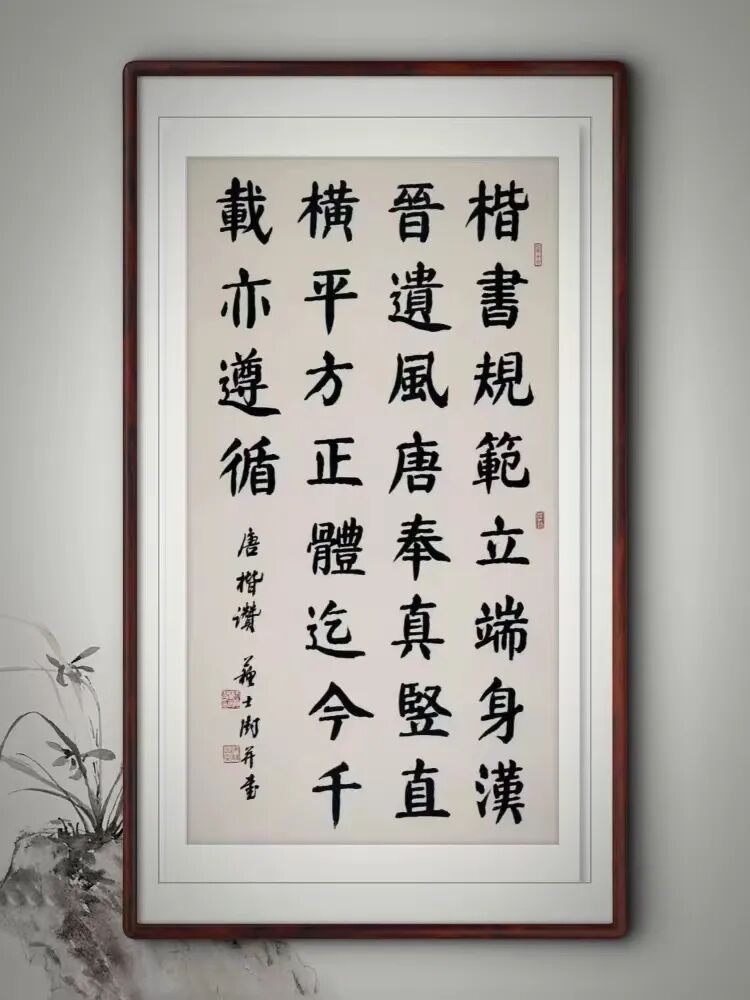 楷書規範立端身漢
晉遺風唐奉真竪直
橫平方正體迄今千
載亦遵循
唐楷讚 蘇士澍并書